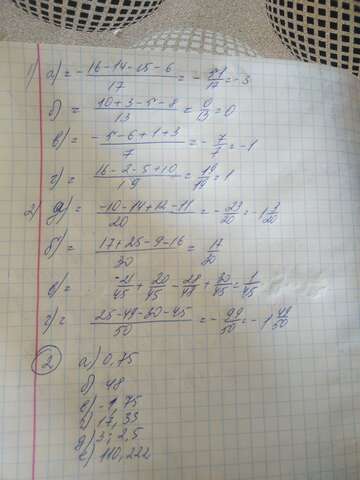 1) а) = -16-14-15-6/17 = -51/17 = -3
б) = 10+3-5-8/13 = 0/13 = 0
в) = -5-6+1+3/7 = -7/7 = -1
г) = 16-2-5+10/19 = 19/19 = 1
2) д) = -10-14+12-11/20 = -23/20 = -1 3/20
б) = 17+25-9-16/30 = 17/30
в) = -21/45 + 20/45 - 28/45 + 30/45 = 1/45
г) = 25-49-30-45/50 = -99/50 = -1 49/50
2 а) 0,75
б) 48
в) -1,75
г) 17,33
д) 3; 2,5
е) 110,222